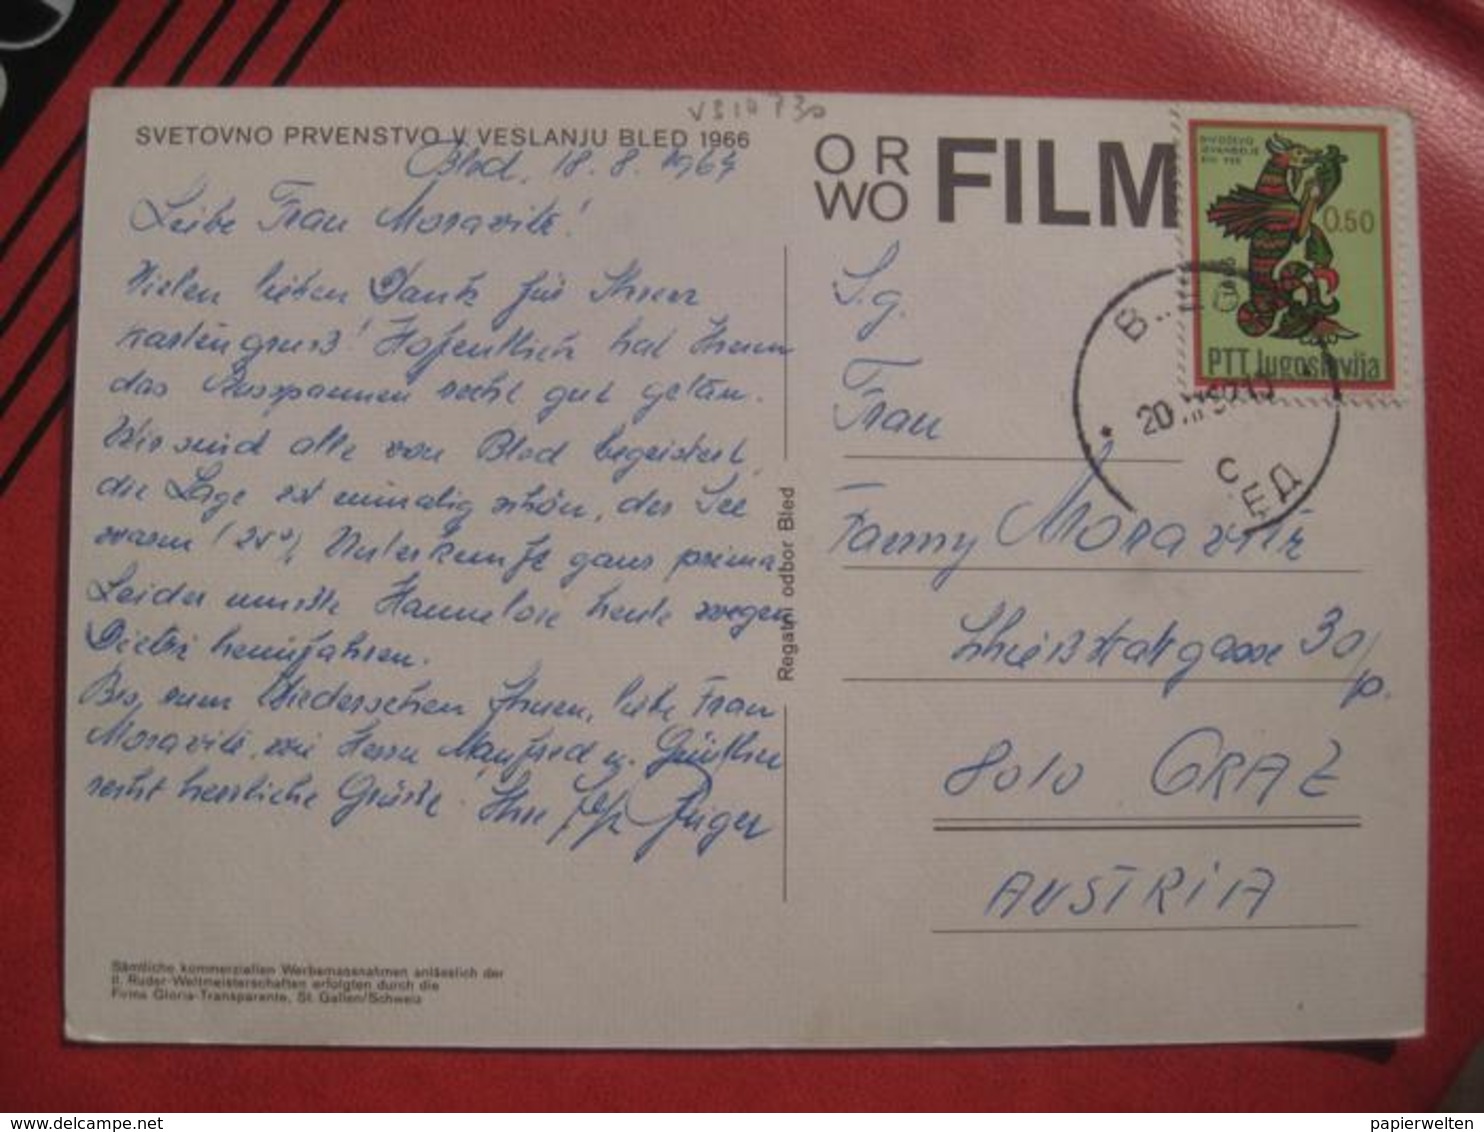 VS1A730
SVETOVNO PRVENSTVO V VESLANJU BLED 1966
Bled, 18. 8. 1967
Liebe Frau Moravitz!
Vielen lieben Dank für Ihren
Kartengruß! Hoffentlich hat Ihnen
das Ausspannen recht gut getan.
Wir sind alle von Bled begeistert,
die Lage ist einmalig schön, der See
warm (25°), Unterkunft ganz prima
Leider musste Hannelore heute wegen
Dietri heimfahren.
Bis zum Wiedersehen Ihnen, liebe Frau
Moravitz, wie Herrn Manfred u. Günther
recht herzliche Grüße. Ihre
Sämtliche kommerziellen Werbemassnahmen anlässlich der
II. Ruder-Weltmeisterschaften erfolgten durch die
Firma Gloria-Transparente, St. Gallen/Schweiz
Regatni odbor Bled
OR
WO FILM
MIROSLAVLJEVO
JEVANĐELJE
XII VEK
0.50
1966
PTT Jugoslavija
БЛЕД
20
C
S.g.
Frau
Fanny Moravitz
Schießstattgasse 30/p.
8010 GRAZ
AUSTRIA
papierwelten
delcampe.net